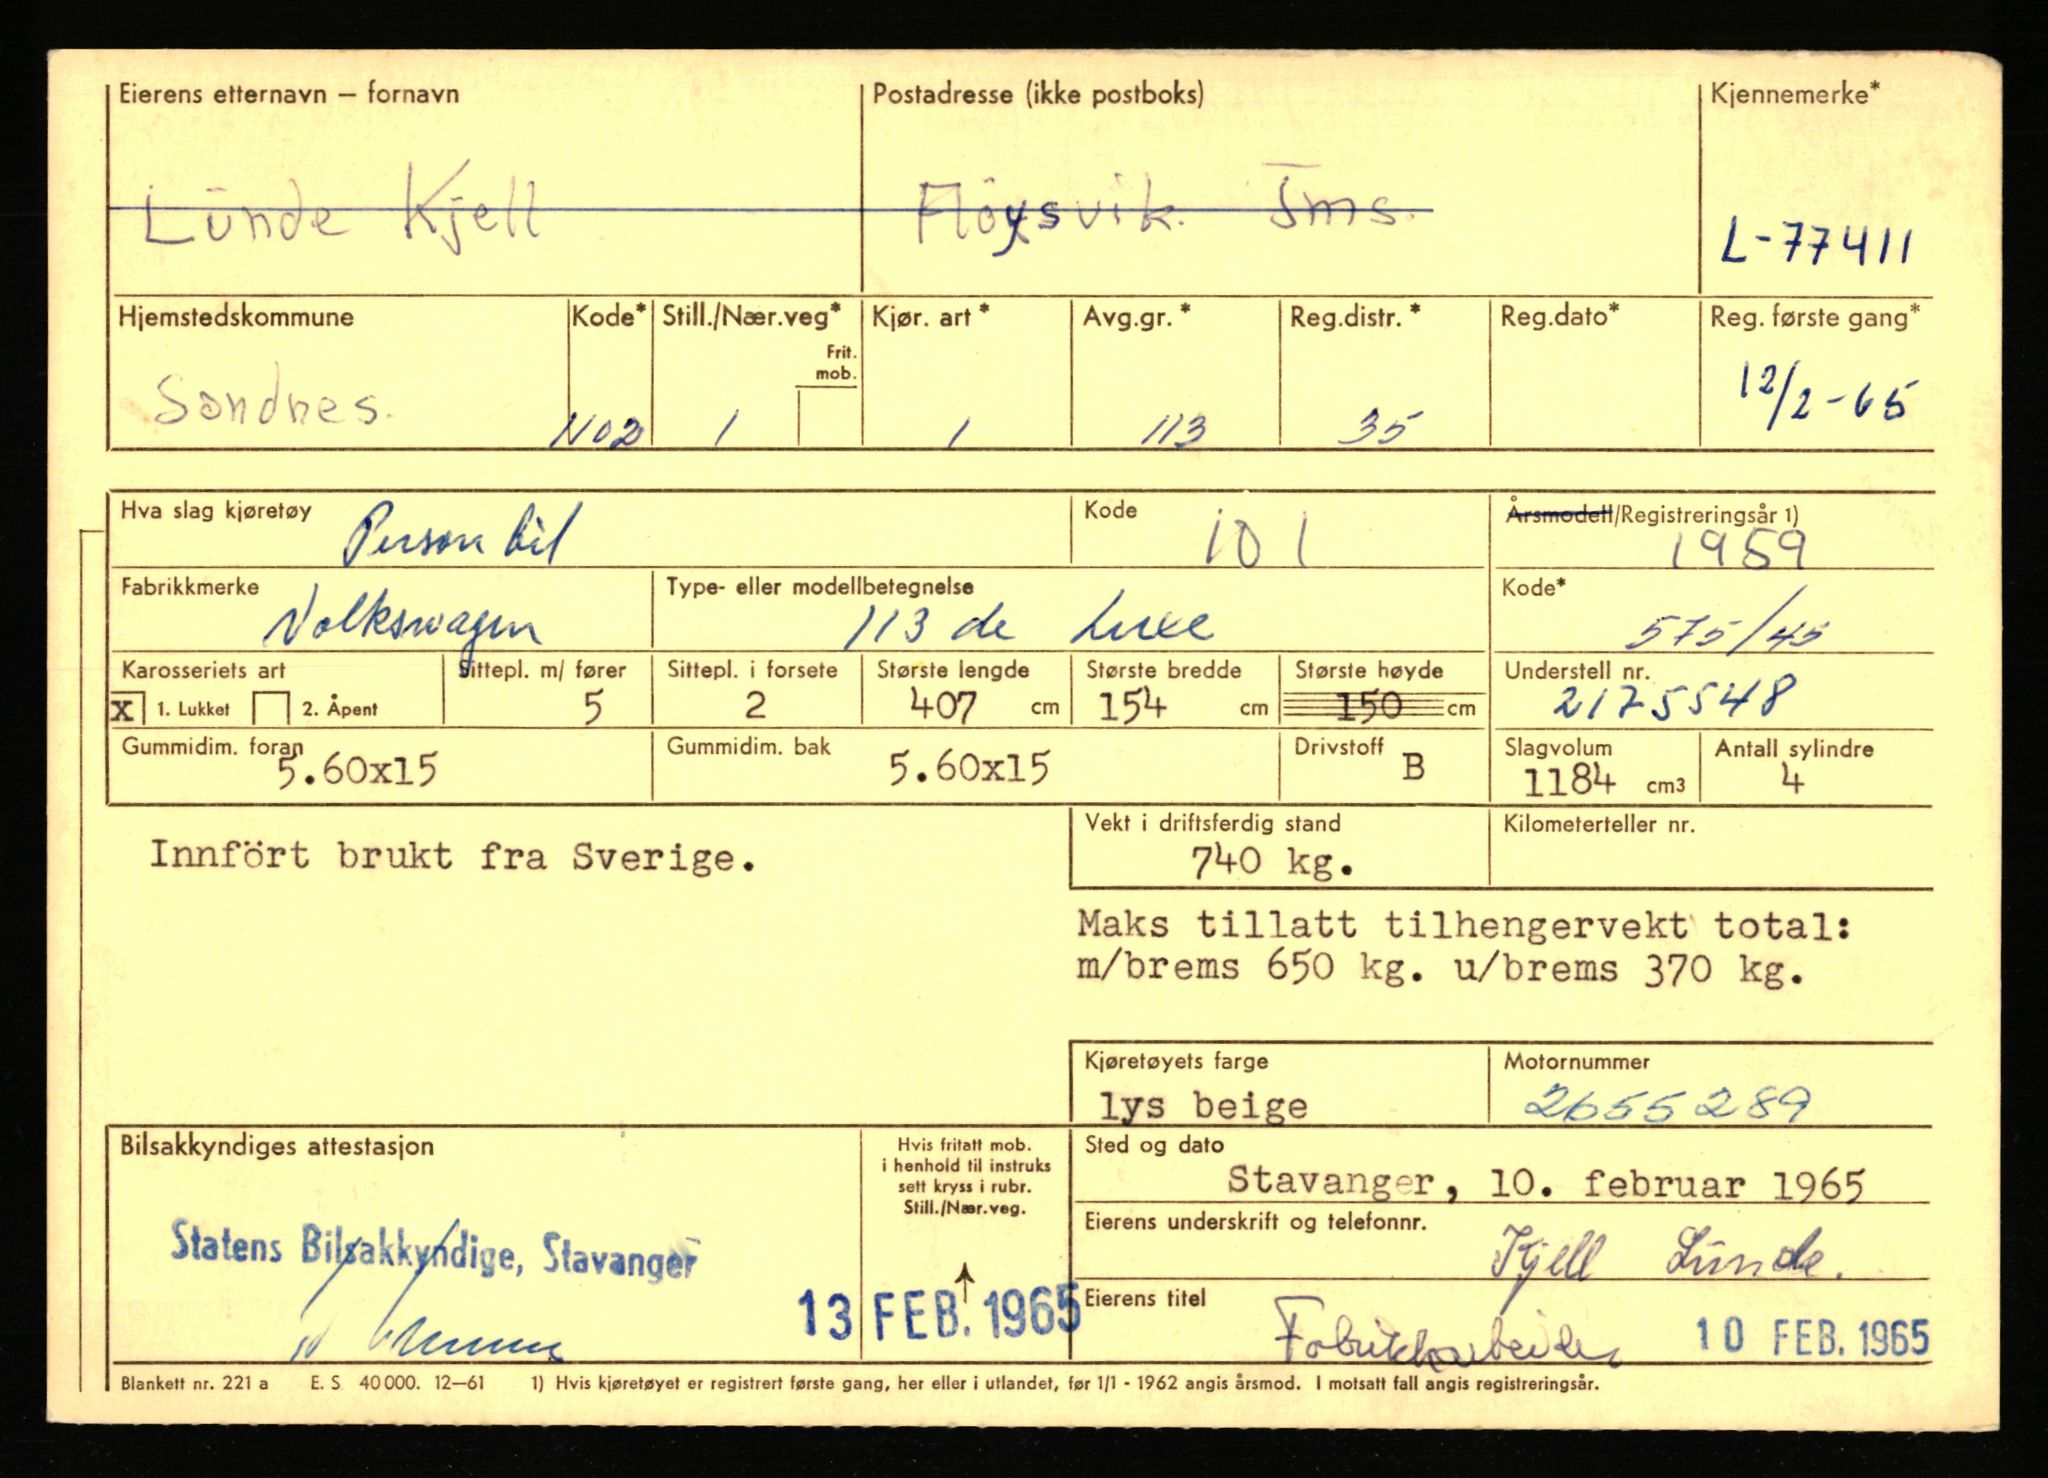 Eierens etternavn – fornavn
Postadresse (ikke postboks)
Kjennemerke*
Lunde Kjell
Fløysvik. Ims.
L-77411
Hjemstedskommune
Kode*
Still./Nær.veg*
Frit. mob.
Kjør. art *
Avg.gr. *
Reg.distr. *
Reg.dato*
Reg. første gang*
Sandnes.
1102
1
1
113
35
12/2-65
Hva slag kjøretøy
Personbil
Kode
101
Årsmodell/Registreringsår 1)
1959
Fabrikkmerke
Volkswagen
Type- eller modellbetegnelse
113 de Luxe
Kode*
575/45
Karosseriets art
X 1. Lukket 2. Åpent
Sittepl. m/ fører
5
Sittepl. i forsete
2
Største lengde
407 cm
Største bredde
154 cm
Største høyde
150 cm
Understell nr.
2175548
Gummidim. foran
5.60x15
Gummidim. bak
5.60x15
Drivstoff
B
Slagvolum
1184 cm3
Antall sylindre
4
Innfört brukt fra Sverige.
Vekt i driftsferdig stand
740 kg.
Kilometerteller nr.
Maks tillatt tilhengervekt total:
m/brems 650 kg. u/brems 370 kg.
Kjøretøyets farge
lys beige
Motornummer
2655289
Bilsakkyndiges attestasjon
Statens Bilsakkyndige, Stavanger
13 FEB. 1965
Hvis fritatt mob.
i henhold til instruks
sett kryss i rubr.
Still./Nær.veg.
↑
Sted og dato
Stavanger, 10. februar 1965
Eierens underskrift og telefonnr.
Kjell Lunde.
Eierens titel
Fabrikkarbeider
10 FEB. 1965
Blankett nr. 221 a E. S. 40 000. 12–61 1) Hvis kjøretøyet er registrert første gang, her eller i utlandet, før 1/1 - 1962 angis årsmod. I motsatt fall angis registreringsår.